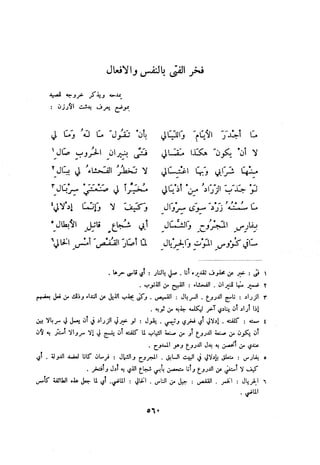 فخر الفتى بالنفس والافعال
يمدحه ويذكر خروجه للصيد
بموضع يعرف بدشت الأرزن :
مَا أَجْدَرَ الأَيّامَ وَاللّيَالي بأنْ تَقُولَ مَا لَهُ وَمَا لي
لا أنْ يَكونَ هكَذا مَقَالي فَتًى بنِيرانِ الحُرُوبِ صَالِ ١
مِنْهَا شَرَابي وَبهَا اغتِسَالي لا تَخطُرُ الفَحشَاءُ لي ببَالِ ٢
لَوْ جَذَبَ الزّرّادُ مِنْ أذْيَالي مُخَيِّراً ليَ صَنْعَتَيْ سِرْبَالِ ٣
مَا سُمْتُهُ زَرْدَ سِوَى سِرْوَالِ وَكَيفَ لا وَإنّمَا إدْلالي ٤
بِفَارِسِ المَجْرُوحِ وَالشَّمَالِ أبي شُجاعٍ قاتِلِ الأبطالِ ٥
سَاقي كُؤوسِ المَوْتِ وَالجِرْيَالِ لمّا أصَارَ القُفْصَ أمْسِ الخَالي ٦
١ فتى : خبر عن محذوف تقديره أنا . صلي بالنار : أي قاسى حرها .
٢ ضمير منها للنيران . الفحشاء : القبيح من الذنوب .
٣ الزراد : ناسج الدروع . السربال : القميص . وكنى بجذب الذيل عن النداء وذلك من فعل بعضهم
إذا أراد أن ينادي آخر ليكلمه جذبه من ثوبه .
٤ سمته : كلفته . إدلالي أي فخري وتيهي . يقول : لو خيرني الزراد في أن يعمل لي سربالا بين
أن يكون من صنعة الدروع أو من صنعة الثياب لما كلفته أن ينسج لي إلا سروالا أستتر به لأن
عندي من أتحصن به بدل الدروع وهو الممدوح .
٥ بفارس : متعلق بإدلالي في البيت السابق . المجروح والشمال : فرسان كانا لعضد الدولة . أي
كيف لا أستغني عن الدروع وأنا متحصن بأبي شجاع الذي به أدل وأفتخر .
٦ الجريال : الخمر . القفص : جيل من الناس . الخالي : الماضي . أي لما جعل هذه الطائفة كأمس
الماضي .
٥٦٠